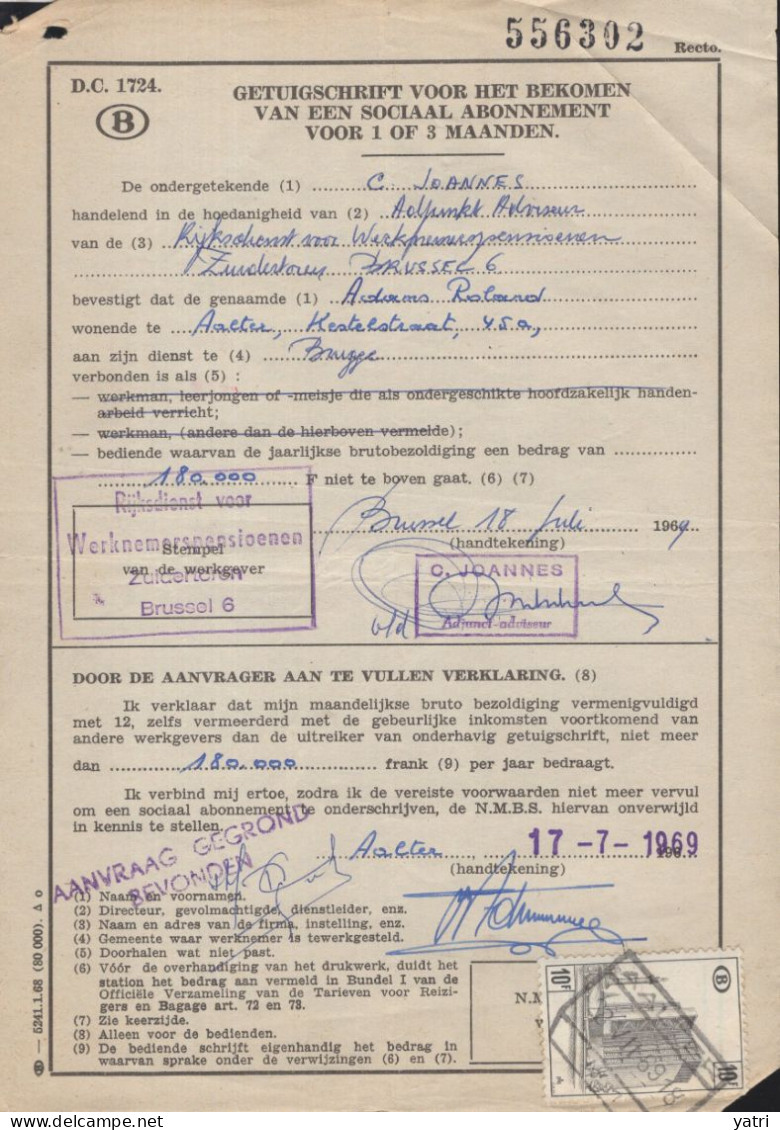 556302 Recto.
D.C. 1724.
B
GETUIGSCHRIFT VOOR HET BEKOMEN
VAN EEN SOCIAAL ABONNEMENT
VOOR 1 OF 3 MAANDEN.
De ondergetekende (1) C. JOANNES
handelend in de hoedanigheid van (2) Adjunkt Adviseur
van de (3) Rijksdienst voor Werknemerspensioenen
Zuidertoren BRUSSEL 6
bevestigt dat de genaamde (1) Adams Roland
wonende te Aalter, Kestelstraat, 45a,
aan zijn dienst te (4) Brugge
verbonden is als (5) :
— werkman, leerjongen of -meisje die als ondergeschikte hoofdzakelijk handen-
arbeid verricht;
— werkman, (andere dan de hierboven vermelde);
— bediende waarvan de jaarlijkse brutobezoldiging een bedrag van
180.000 F niet te boven gaat. (6) (7)
Rijksdienst voor
Werknemerspensioenen
Zuidertoren
Brussel 6
Stempel
van de werkgever
Brussel 18 Juli 1969
(handtekening)
C. JOANNES
Adjunct-adviseur
DOOR DE AANVRAGER AAN TE VULLEN VERKLARING. (8)
Ik verklaar dat mijn maandelijkse bruto bezoldiging vermenigvuldigd
met 12, zelfs vermeerderd met de gebeurlijke inkomsten voortkomend van
andere werkgevers dan de uitreiker van onderhavig getuigschrift, niet meer
dan 180.000 frank (9) per jaar bedraagt.
Ik verbind mij ertoe, zodra ik de vereiste voorwaarden niet meer vervul
om een sociaal abonnement te onderschrijven, de N.M.B.S. hiervan onverwijld
in kennis te stellen.
AANVRAAG GEGROND
BEVONDEN
Aalter , 17-7-1969
(handtekening)
(1) Naam en voornamen.
(2) Directeur, gevolmachtigde, dienstleider, enz.
(3) Naam en adres van de firma, instelling, enz.
(4) Gemeente waar werknemer is tewerkgesteld.
(5) Doorhalen wat niet past.
(6) Vóór de overhandiging van het drukwerk, duidt het
station het bedrag aan vermeld in Bundel I van de
Officiële Verzameling van de Tarieven voor Reizi-
gers en Bagage art. 72 en 73.
(7) Zie keerzijde.
(8) Alleen voor de bedienden.
(9) De bediende schrijft eigenhandig het bedrag in
waarvan sprake onder de verwijzingen (6) en (7).
B — 5241.1.68 (80 000). A o
N.M
v
10F
B
10F
yatri